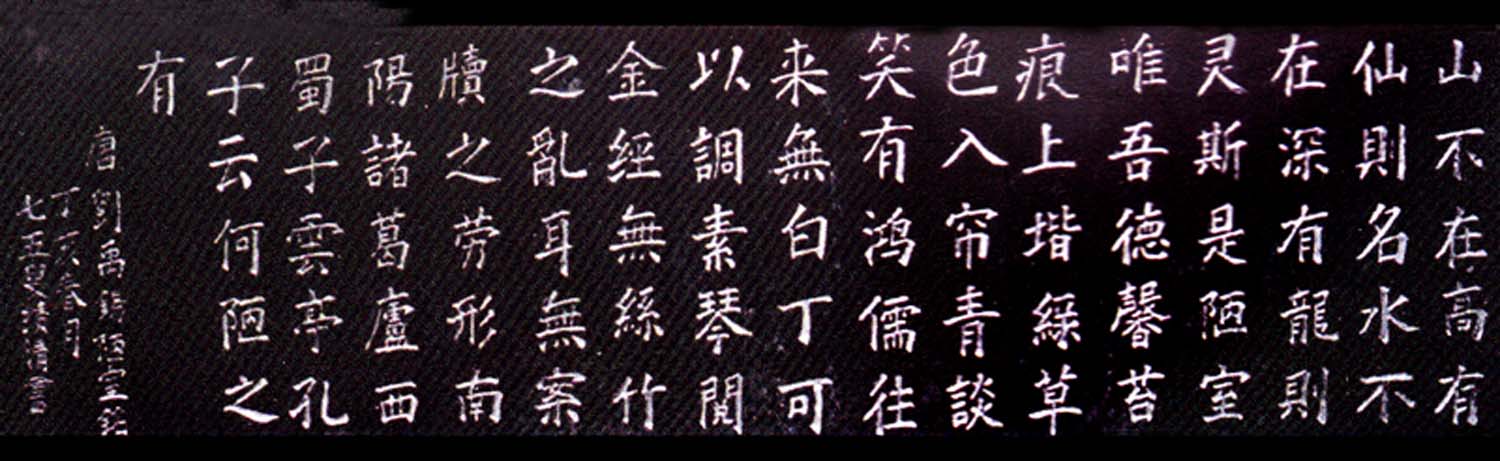 山不在高有
仙則名水不
在深有龍則
灵斯是陋室
唯吾德馨苔
痕上堦緑草
色入帘青談
笑有鸿儒往
来無白丁可
以調素琴閲
金經無絲竹
之亂耳無案
牘之劳形南
陽諸葛廬西
蜀子雲亭孔
子云何陋之
有
唐劉禹錫陋室銘
丁亥春月
七五叟清書